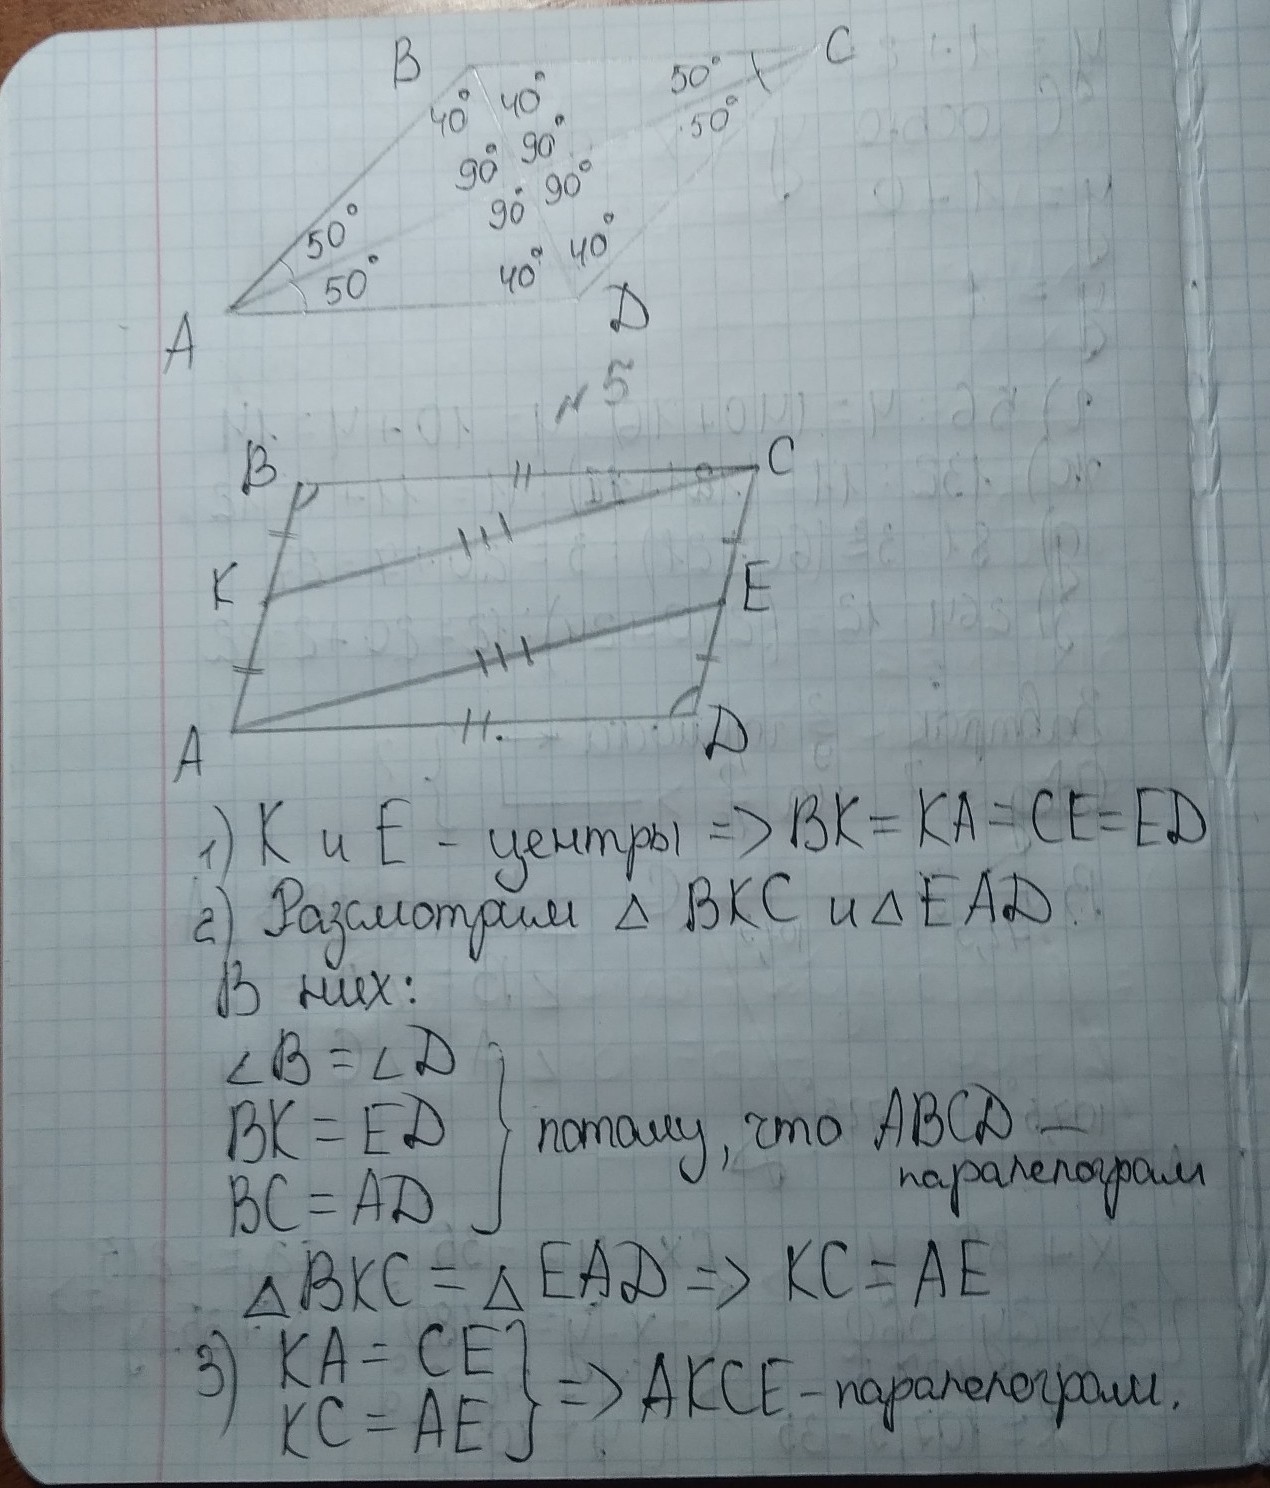 B
C
40° 40°
50°
50°
90° 90°
90° 90°
50°
50°
40° 40°
A
D
№5
B
C
K
E
A
D
1) К и Е - центры => BK = KA = CE = ED
2) Разсмотрим △ BKC и △ EAD.
В них:
∠B = ∠D
BK = ED
BC = AD
потому, что ABCD —
паралелограм
△ BKC = △ EAD => KC = AE
3) KA = CE
KC = AE
=> AKCE - паралелограм.